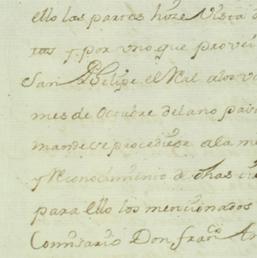 ello las partes hize Vista d
tas y por vno que proveí
San Phelipe el Rl. alos v
mes de Octubre del ano pas
mande se procediese ala me
y Reconocimiento de dhas
para ello los mencionados
Comisario Don franco. An